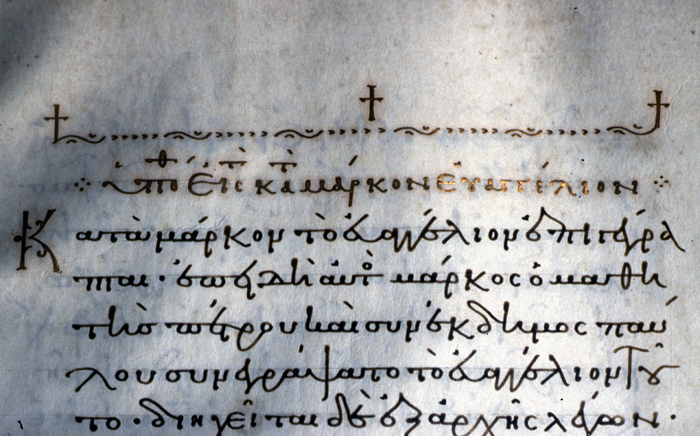 ὑπόθ εἰς τ κατ μάρκον εὐαγγέλιον
Κατὰ μάρκον τὸ εὐαγγέλιον ἐπιγέγρα
πται· ἐπειδὴ αὐτὸ μάρκος ὁ μαθη
τὴς πέτρου καὶ συνέκδημος παύ
λου συνεγράψατο τὸ εὐαγγέλιον τοῦ
το· διηγεῖται δὲ ἐξ ἀρχῆς λέγων·